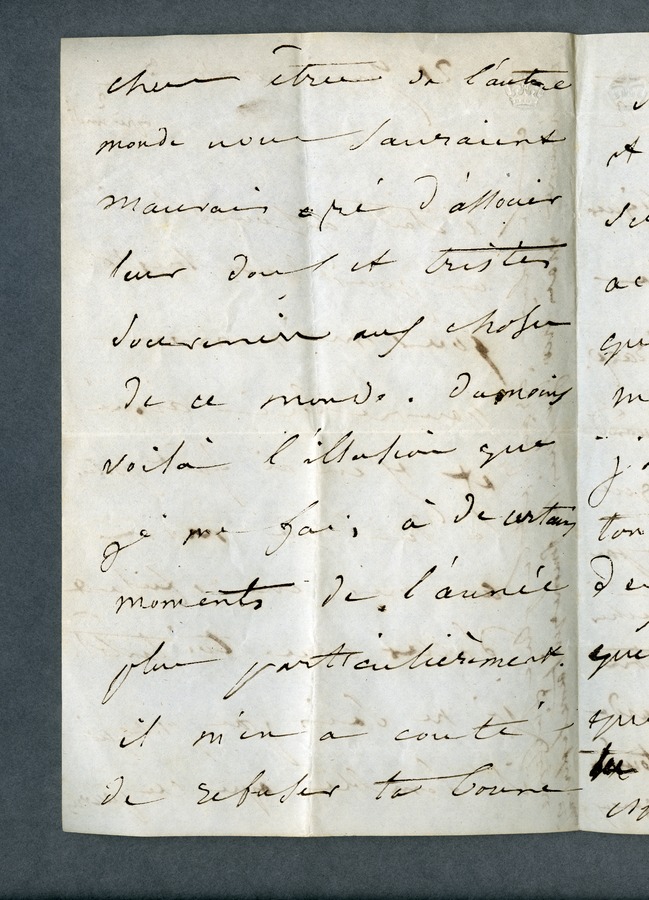 chers êtres de l'autre
monde nous sauraient
mauvais gré d'associer
leur doux et tristes
souvenirs aux choses
de ce monde. Du moins
voilà l'illusion que
je me fais, à de certains
moments de l'année
plus particulièrement.
il m'en a couté
de refuser ta bonne
et
qu
m
j'
ton
de
que
qu